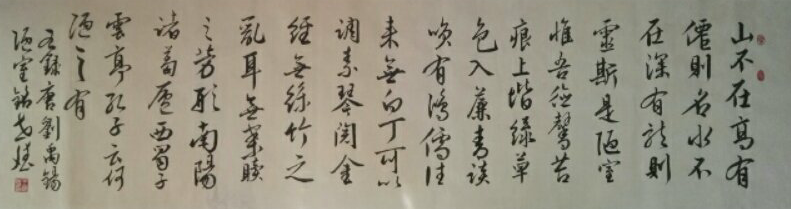 山不在高有
僊則名水不
在深有龍則
靈斯是陋室
惟吾德馨苔
痕上階綠草
色入簾青談
咲有鴻儒往
来無白丁可以
調素琴閱金
經無絲竹之
亂耳無案牘
之勞形南陽
諸葛廬西蜀子
雲亭孔子云何
陋之有
右錄唐劉禹錫
陋室銘